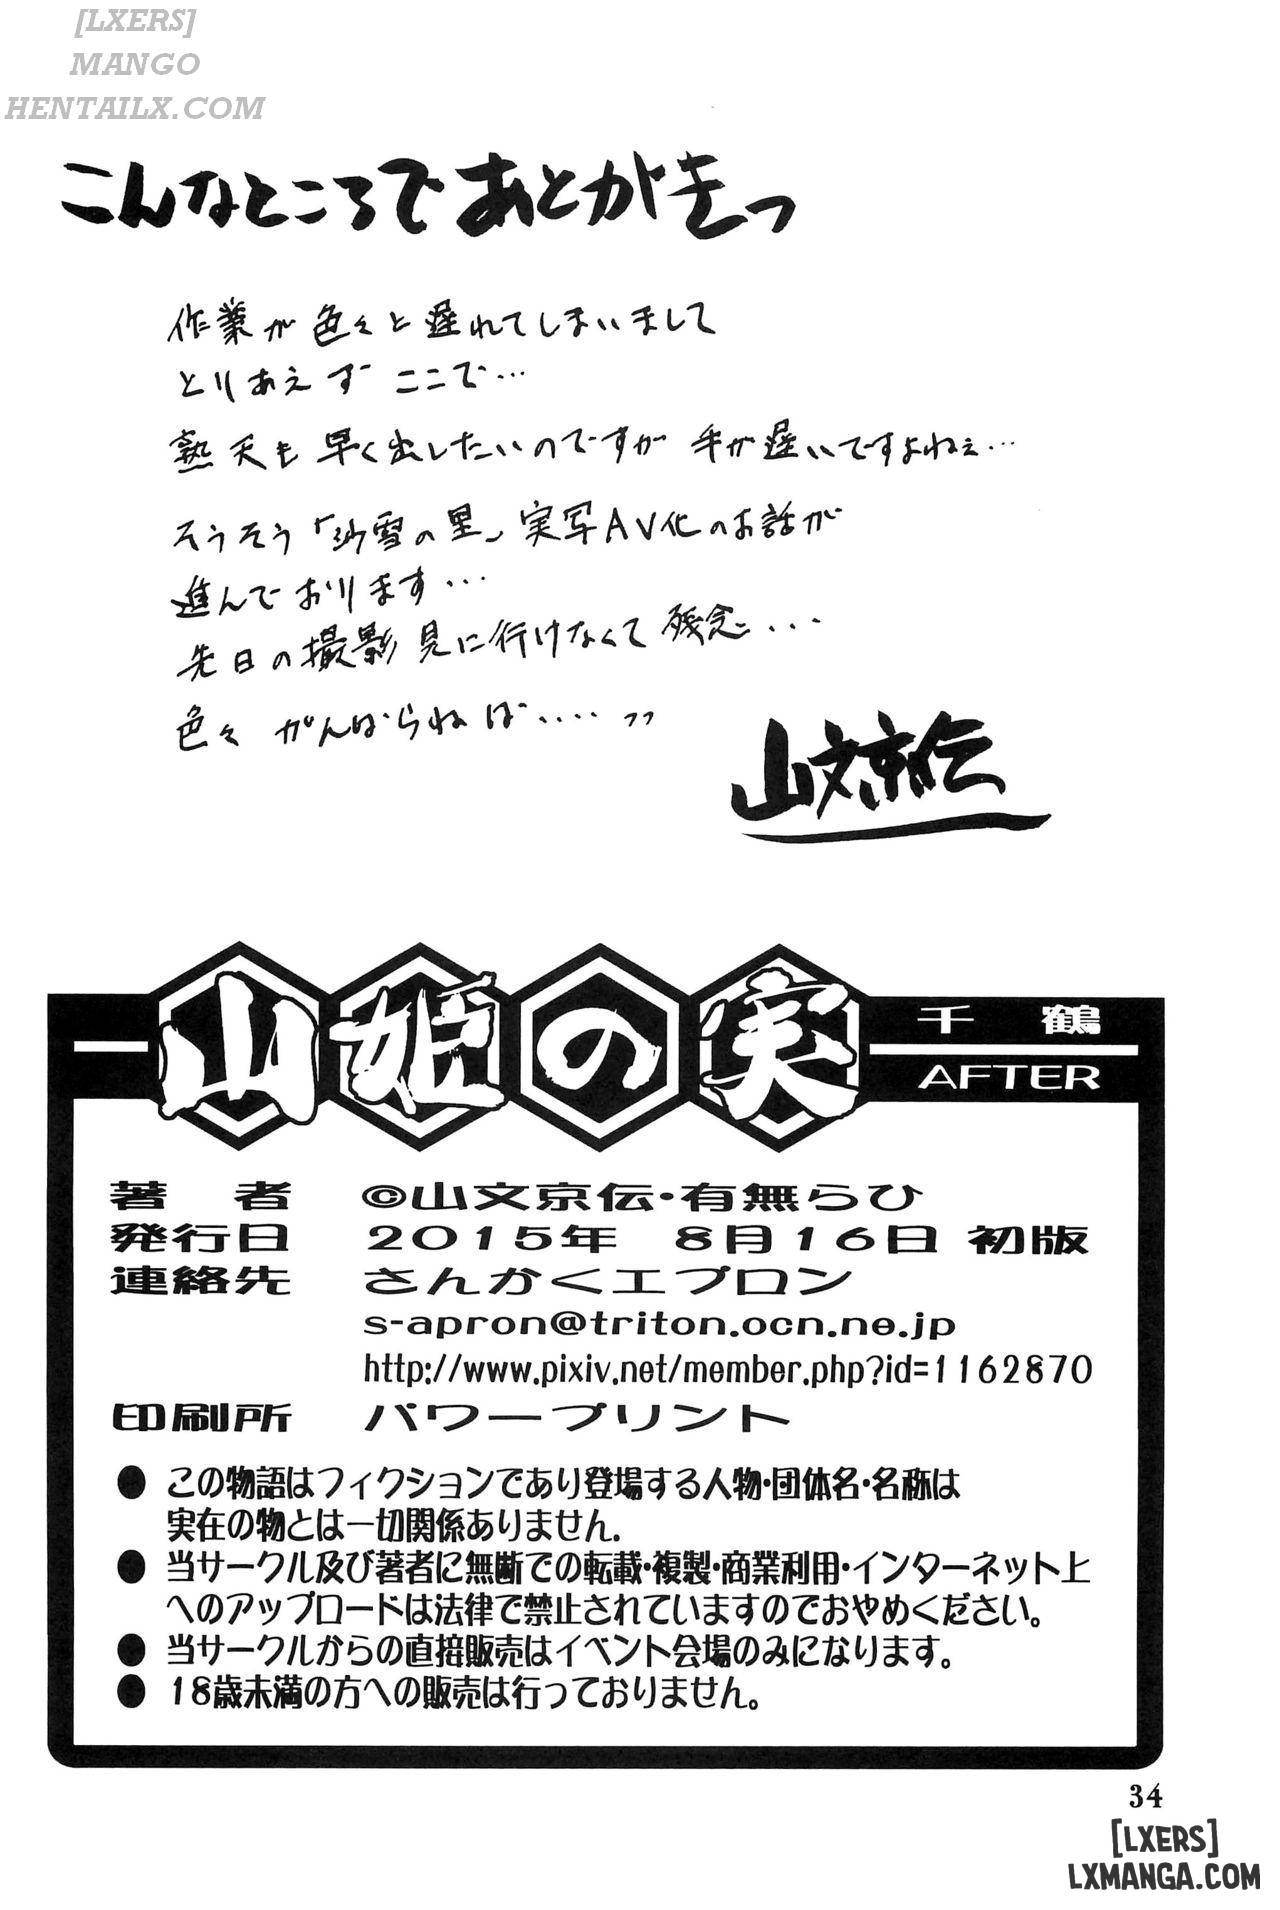 [LXERS]
MANGO
HENTAILX.COM
こんなところであとがきっ
作業が色々と遅れてしまいまして
とりあえず ここで…
熟天も 早く出したいのですが 手が遅いですよねぇ…
そうそう「沙雪の里」実写AV化のお話が
進んでおります…
先日の撮影見に行けなくて残念…
色々 がんばらねば‥‥ッッ
山文京伝
山姫の実
千鶴
AFTER
著者 ©山文京伝・有無らひ
発行日 2015年 8月16日 初版
連絡先 さんかくエプロン
s-apron@triton.ocn.ne.jp
http://www.pixiv.net/member.php?id=1162870
印刷所 パワープリント
● この物語はフィクションであり登場する人物・団体名・名称は
実在の物とは一切関係ありません.
● 当サークル及び著者に無断での転載・複製・商業利用・インターネット上
へのアップロードは法律で禁止されていますのでおやめください。
● 当サークルからの直接販売はイベント会場のみになります。
● 18歳未満の方への販売は行っておりません。
34
[LXERS]
LXMANGA.COM